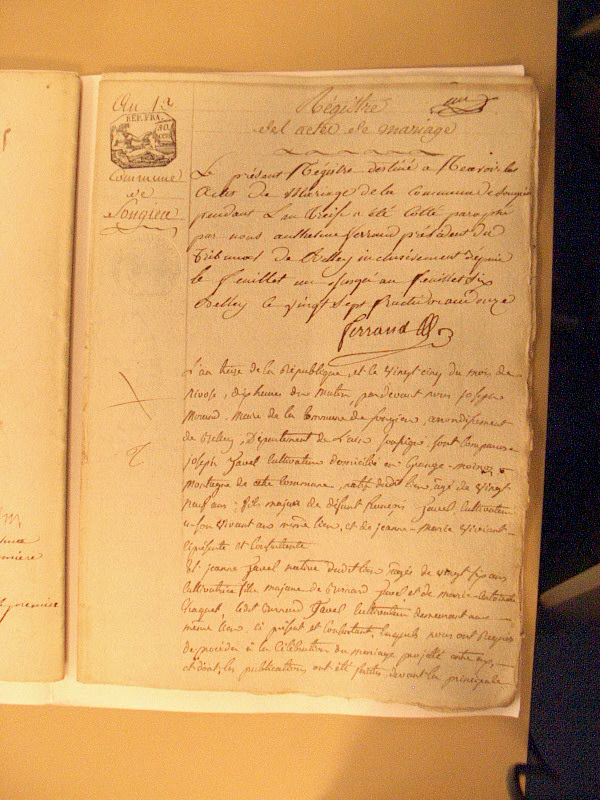 An 13
REP. FRA.
Commune
de
Songieu
Régistre un
del actes de mariage
Le présent Régistre destiné a Recevoir les
Actes de Mariage de la Commune de Songieu
pendant L'an treise a été Cotté paraphé
par nous Anthelme ferrand président du
Tribunal de Belley inclusivement depuis
le feuillet un jusqu'au feuillet six
Belley le vingt Sept fructidor an douze
ferrand
L'an treise de la République, et le vingt cinq du mois de
nivose, dix heures du matin, pardevant nous joseph
Morand, Maire de la Commune de songieu, arrondissement
de Belley, Département de L'ain soussigné, sont comparus
joseph Javel Cultivateur domicilié en Grange-
montagne de cette Commune, natif dudit lieu, agé de vingt
neuf ans; fils majeur de défunt Javel Cultivateur
de son vivant au même lieu, et de jeanne-marie
présente et Consentente
Et jeanne Javel native dudit lieu agée de vingt six ans
Cultivatrice fille majeure de Bernard Javel, et de marie-antoinette
ledit Bernard Javel Cultivateur demeurant au
même lieu, ici présent et Consentant, lesquels nous ont Requis
de procéder à la Célébration du mariage projetté entre eux,
et dont les publications ont été faites devant la principale